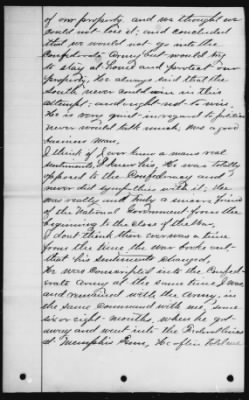 of our property, and we thought we
could not lose it, and concluded
that we would not go into the
Confederate Army, but would try
to stay at home and protect our
property. He always said that the
South never could win in this
attempt; and ought not to win.
He is very quiet in regard to politics
never would talk much, was a good
business man,
I think if I ever knew a mans real
sentiments, I knew his. He was totally
opposed to the Confederacy and
never did sympathise with it. He
was really and truly a sincere friend
of the National Government from the
beginning to the close of the War,
I dont think there ever was a time
from the time the war broke out
that his sentiments changed,
He was conscripted into the Confed-
erate Army at the same time I was,
and remained with the Army, in
the same Command with me, some
six or eight months, when he got
away and went into the Federal lines
at Memphis Tenn, He often told me